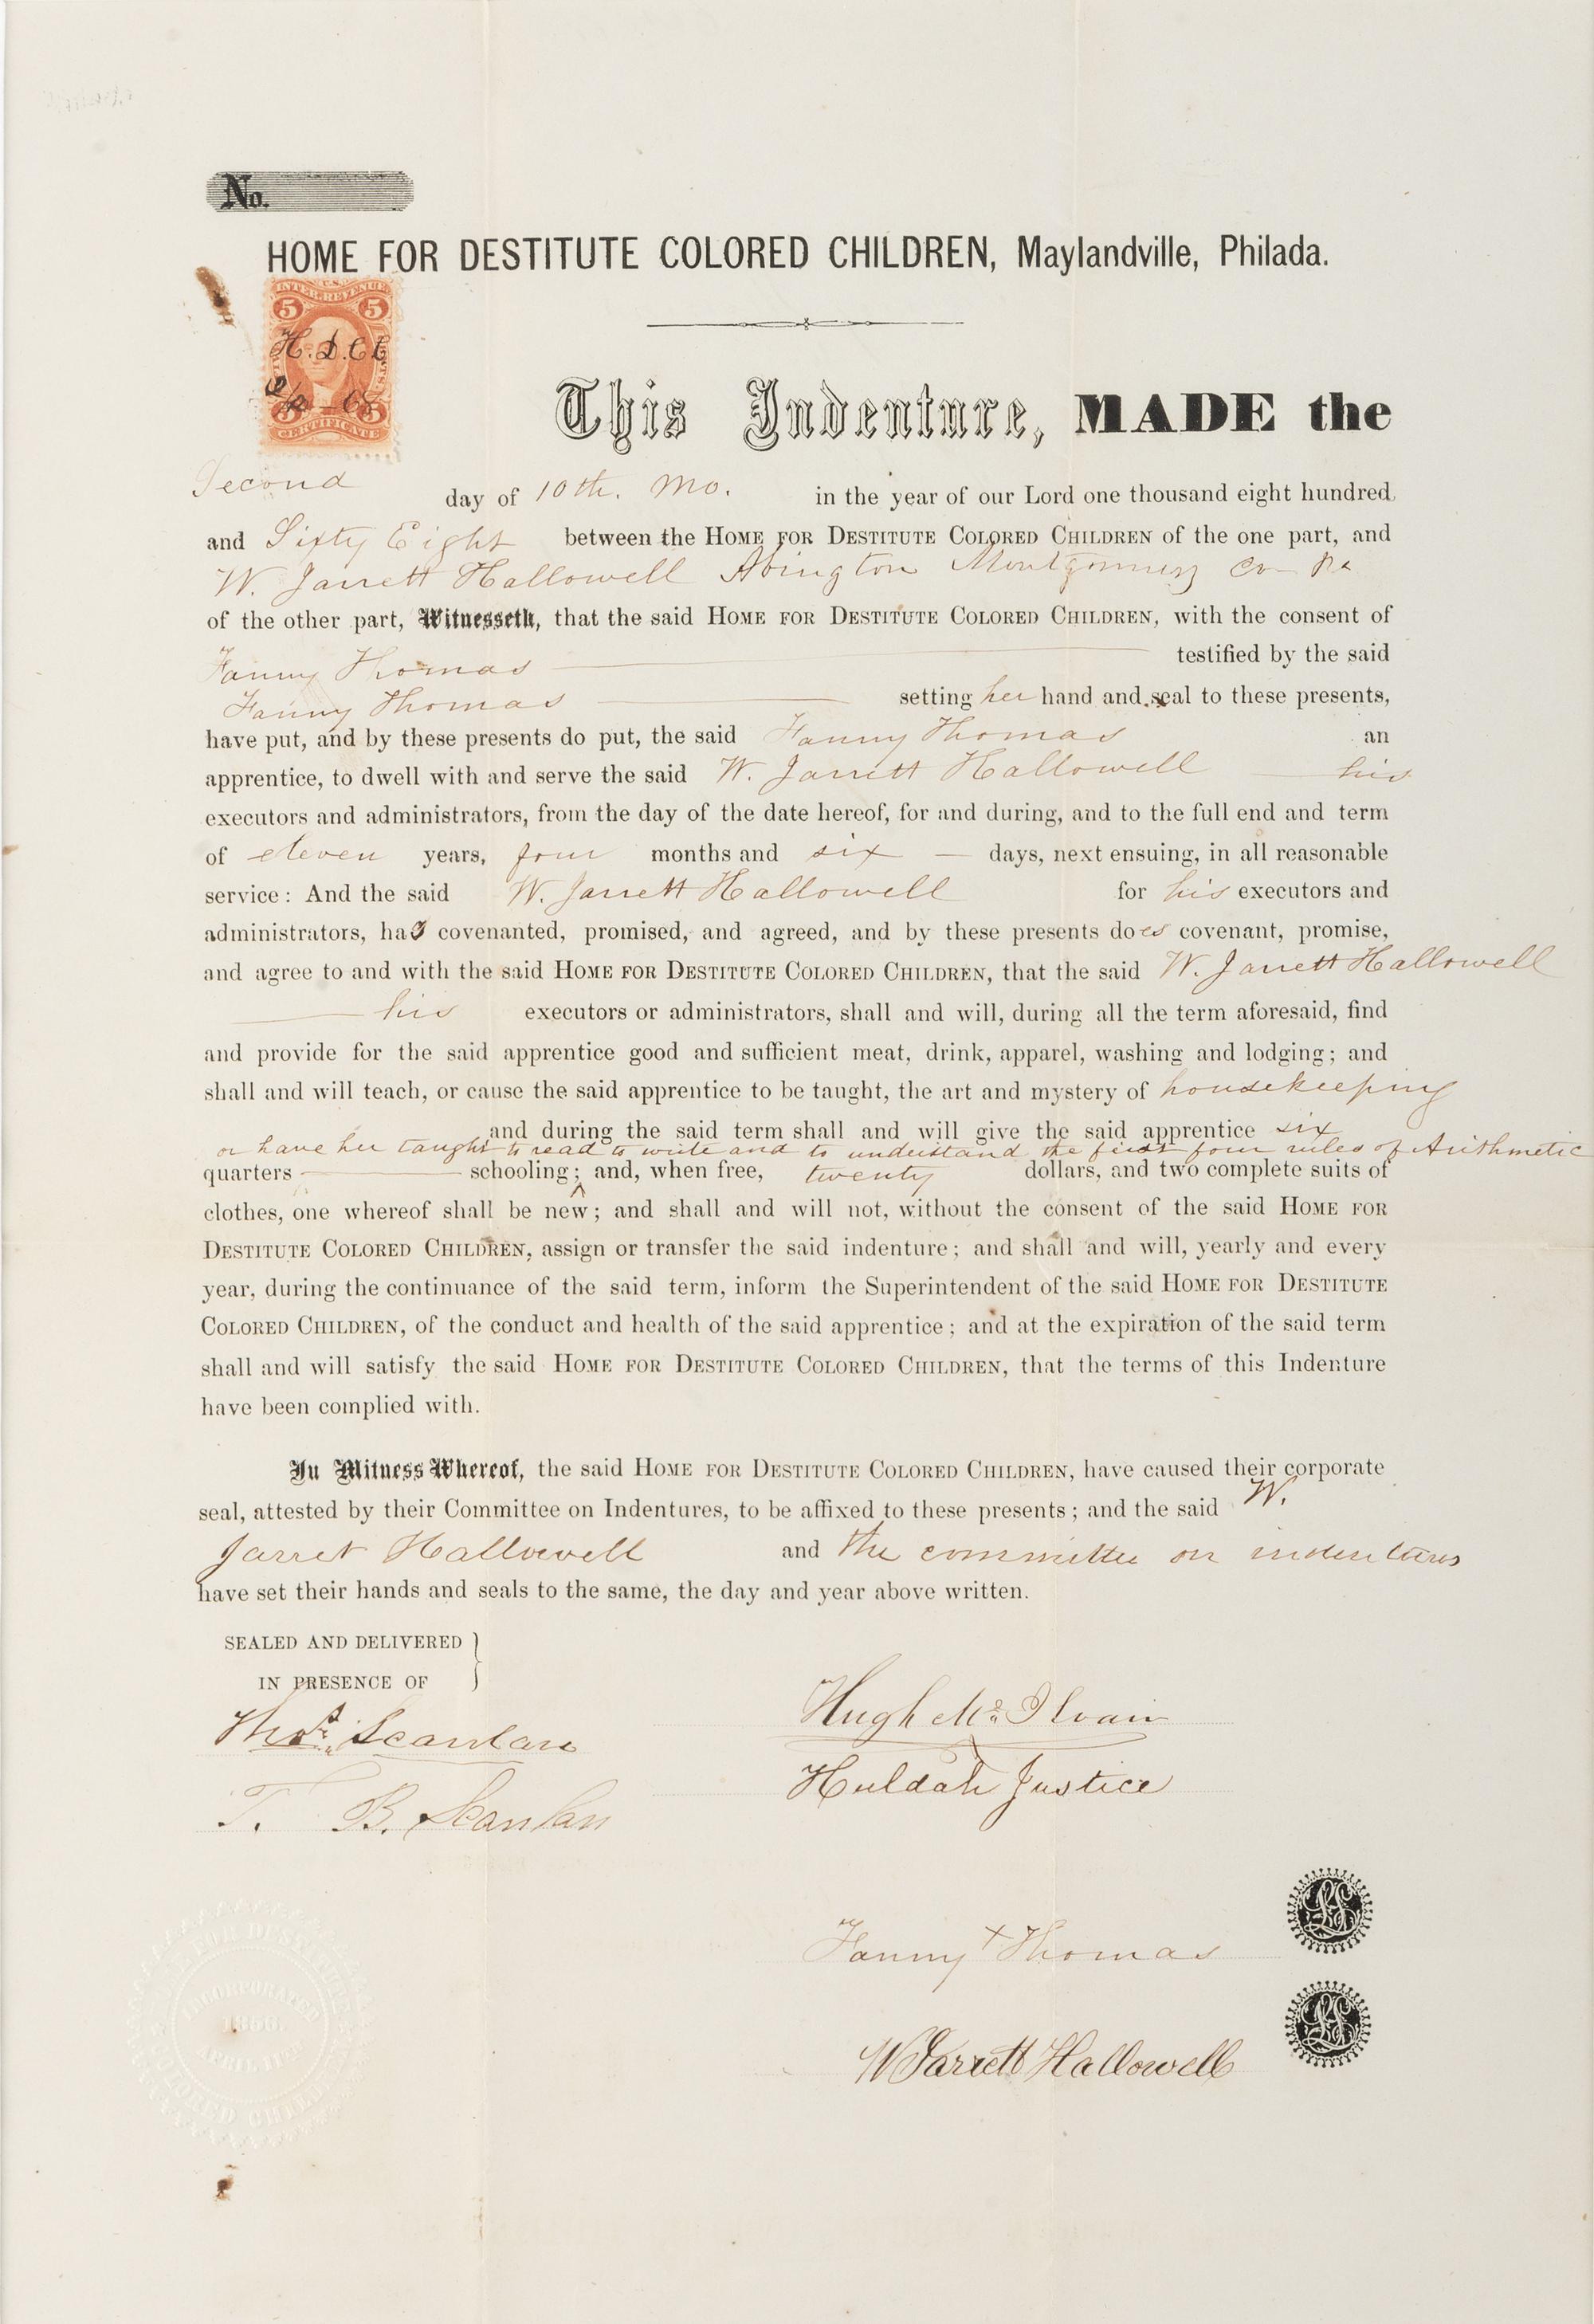 No.
HOME FOR DESTITUTE COLORED CHILDREN, Maylandville, Philada.
U.S.
INTER. REVENUE
5 5
H.D.C.C.
5 5
CERTIFICATE
This Indenture, MADE the
Second day of 10th. Mo. in the year of our Lord one thousand eight hundred
and Sixty Eight between the HOME FOR DESTITUTE COLORED CHILDREN of the one part, and
W. Jarrett Hallowell Abington Montgomery Co Pa
of the other part, Witnesseth, that the said HOME FOR DESTITUTE COLORED CHILDREN, with the consent of
Fanny Thomas testified by the said
Fanny Thomas setting her hand and seal to these presents,
have put, and by these presents do put, the said Fanny Thomas an
apprentice, to dwell with and serve the said W. Jarrett Hallowell his
executors and administrators, from the day of the date hereof, for and during, and to the full end and term
of eleven years, four months and six days, next ensuing, in all reasonable
service: And the said W. Jarrett Hallowell for his executors and
administrators, has covenanted, promised, and agreed, and by these presents does covenant, promise,
and agree to and with the said HOME FOR DESTITUTE COLORED CHILDREN, that the said W. Jarrett Hallowell
his executors or administrators, shall and will, during all the term aforesaid, find
and provide for the said apprentice good and sufficient meat, drink, apparel, washing and lodging; and
shall and will teach, or cause the said apprentice to be taught, the art and mystery of housekeeping
and during the said term shall and will give the said apprentice six
or have her taught to read to write and to understand the first four rules of Arithmetic
quarters schooling; and, when free, twenty dollars, and two complete suits of
clothes, one whereof shall be new; and shall and will not, without the consent of the said HOME FOR
DESTITUTE COLORED CHILDREN, assign or transfer the said indenture; and shall and will, yearly and every
year, during the continuance of the said term, inform the Superintendent of the said HOME FOR DESTITUTE
COLORED CHILDREN, of the conduct and health of the said apprentice; and at the expiration of the said term
shall and will satisfy the said HOME FOR DESTITUTE COLORED CHILDREN, that the terms of this Indenture
have been complied with.
In Witness Whereof, the said HOME FOR DESTITUTE COLORED CHILDREN, have caused their corporate
seal, attested by their Committee on Indentures, to be affixed to these presents; and the said W.
Jarret Hallowell and the committee on indentures
have set their hands and seals to the same, the day and year above written.
SEALED AND DELIVERED
IN PRESENCE OF
Thos. Scanlan
T. B. Scanlan
Hugh McIlvain
Huldah Justice
Fanny + Thomas
LS
W Jarrett Hallowell
LS
FOR DESTITUTE
INCORPORATED
1866
APRIL 11
COLORED CHILDREN